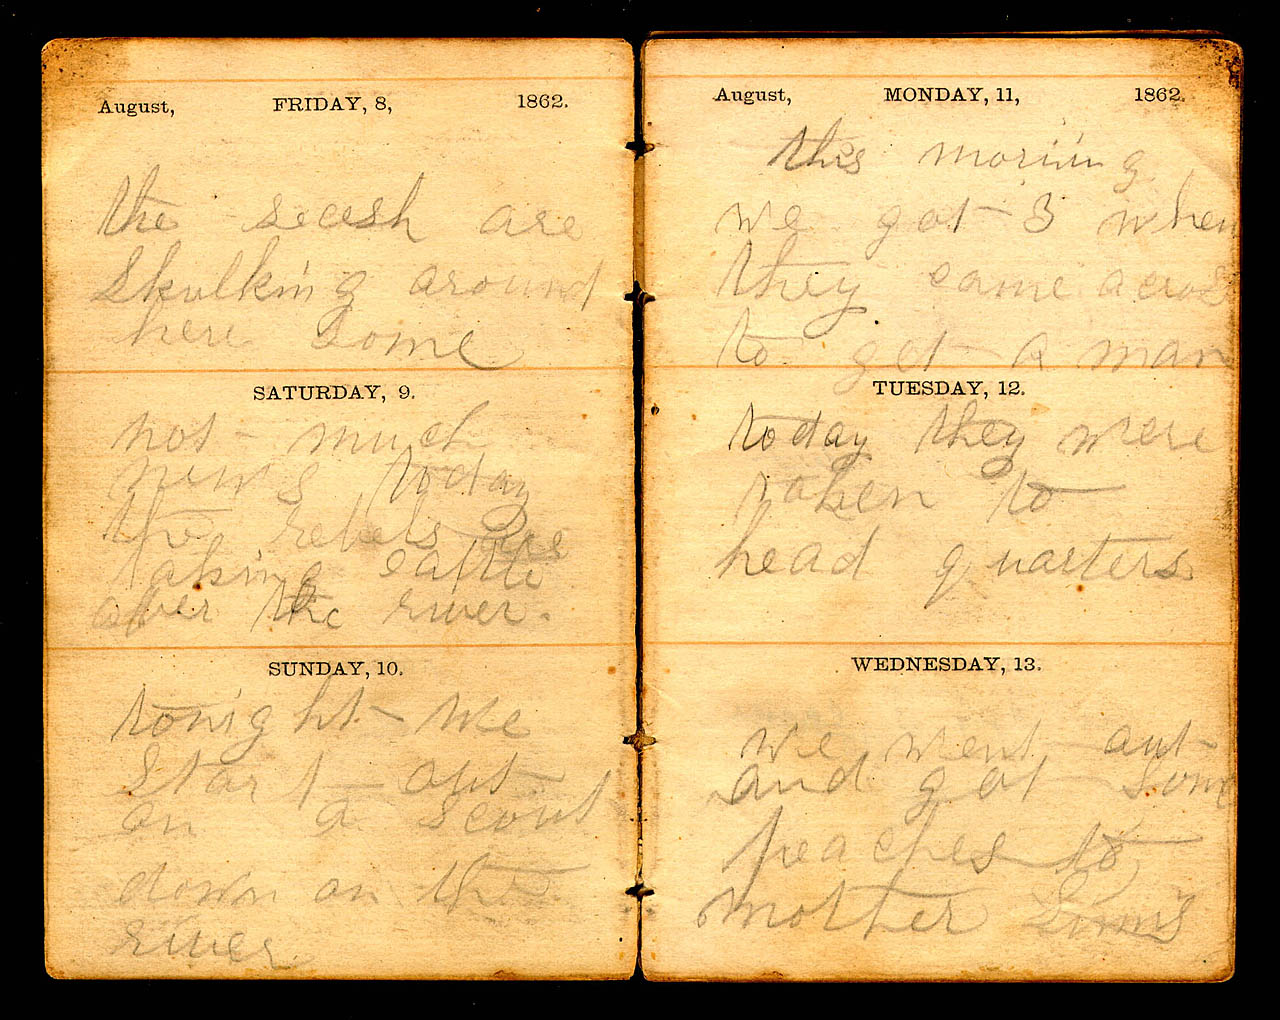 August, FRIDAY, 8, 1862.
the secesh are
Skulking around
here some
SATURDAY, 9.
not much
news today
the rebels are
taking cattle
over the river.
SUNDAY, 10.
tonight we
Start out
on a scout
down on the
river
August, MONDAY, 11, 1862.
this morning
we got 3 when
they came across
to get a man
TUESDAY, 12.
today they were
taken to
head quarters
WEDNESDAY, 13.
we went out
and got some
peaches to
mother Sims